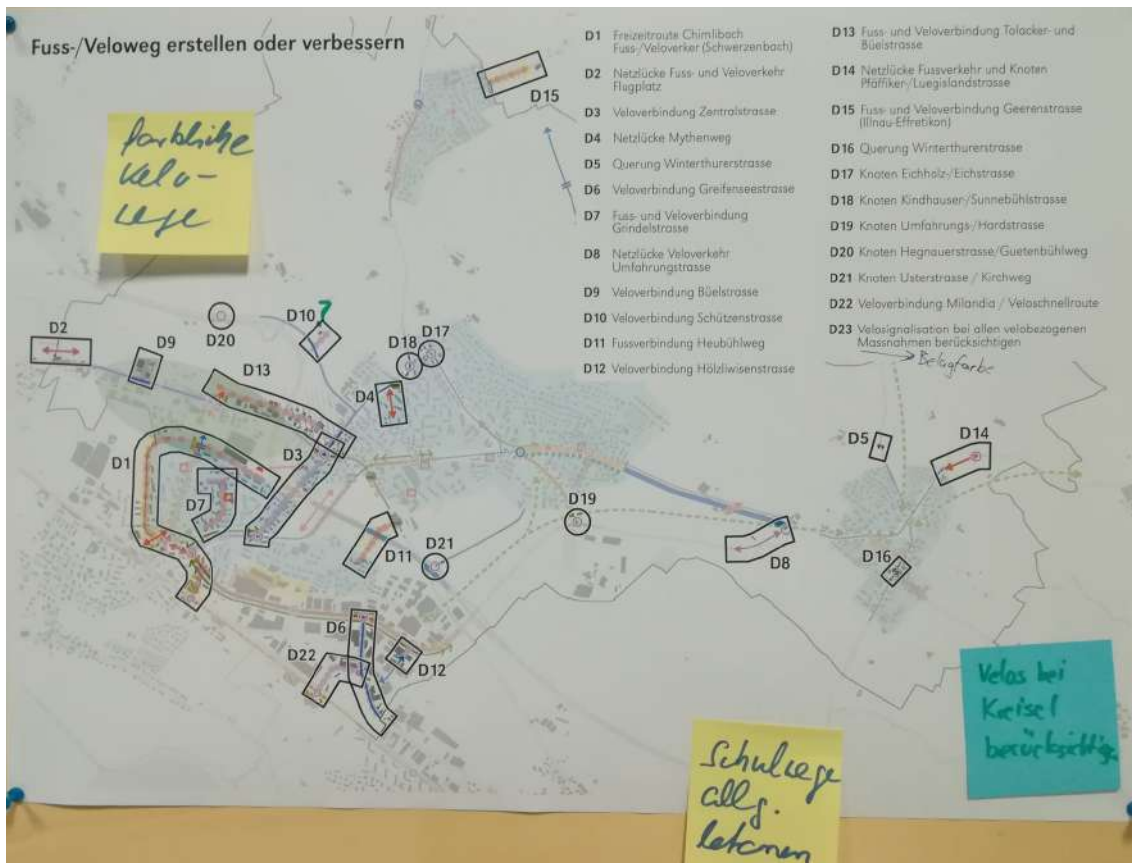 Fuss-/Veloweg erstellen oder verbessern
D1 Freizeitroute Chimlibach
Fuss-/Veloverker (Schwerzenbach)
D2 Netzlücke Fuss- und Veloverkehr
Flugplatz
D3 Veloverbindung Zentralstrasse
D4 Netzlücke Mythenweg
D5 Querung Winterthurerstrasse
D6 Veloverbindung Greifenseestrasse
D7 Fuss- und Veloverbindung
Grindelstrasse
D8 Netzlücke Veloverkehr
Umfahrungstrasse
D9 Veloverbindung Büelstrasse
D10 Veloverbindung Schützenstrasse
D11 Fussverbindung Heubühlweg
D12 Veloverbindung Hölzliwisenstrasse
D13 Fuss- und Veloverbindung Tolacker- und
Büelstrasse
D14 Netzlücke Fussverkehr und Knoten
Pfäffiker-/Luegislandstrasse
D15 Fuss- und Veloverbindung Geerenstrasse
(Illnau-Effretikon)
D16 Querung Winterthurerstrasse
D17 Knoten Eichholz-/Eichstrasse
D18 Knoten Kindhauser-/Sunnebühlstrasse
D19 Knoten Umfahrungs-/Hardstrasse
D20 Knoten Hegnauerstrasse/Guetenbühlweg
D21 Knoten Usterstrasse / Kirchweg
D22 Veloverbindung Milandia / Veloschnellroute
D23 Velosignalisation bei allen velobezogenen
Massnahmen berücksichtigen
Belagfarbe
D15
farbliche
Velo-
wege
7
D10
D20
D2
D9
D18
D17
D13
D4
D3
D1
D7
D5
D14
D19
D11
D21
D8
D16
D6
D22
D12
Velos bei
Kreisel
berücksichtige
Schulwege
allg.
betonen